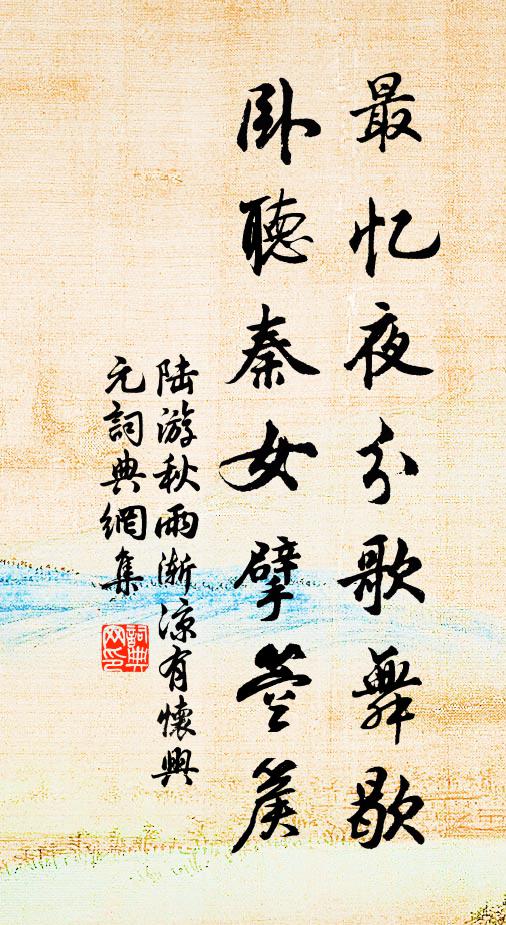 最忆夜分歌舞歇
卧聽秦女擘箜篌
陆游秋雨渐凉有懷興
元詞典網集
詞典网印